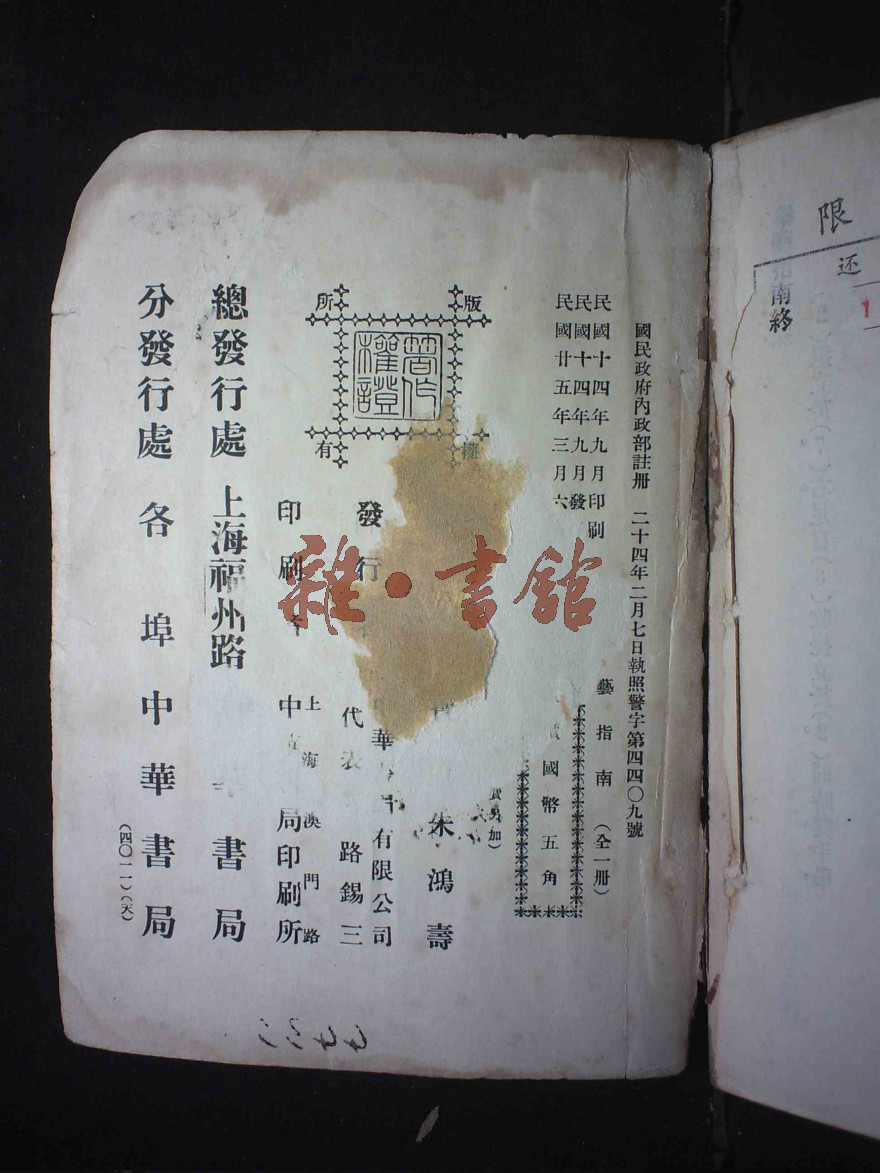 國民政府內政部註冊 二十四年二月七日執照警字第四四〇九號
民國十四年九月印刷
民國十四年九月發
民國廿五年三月六
藝指南（全一冊）
國幣五角
加）
版權所有
著作權證
朱鴻壽
發行
中華 有限公司
代表 路錫三
印刷 中 局印刷所
上海澳門路
總發行處 上海福州路 書局
分發行處 各埠中華書局
（四〇一一）（天）
雜·書館
限
还
1
南終